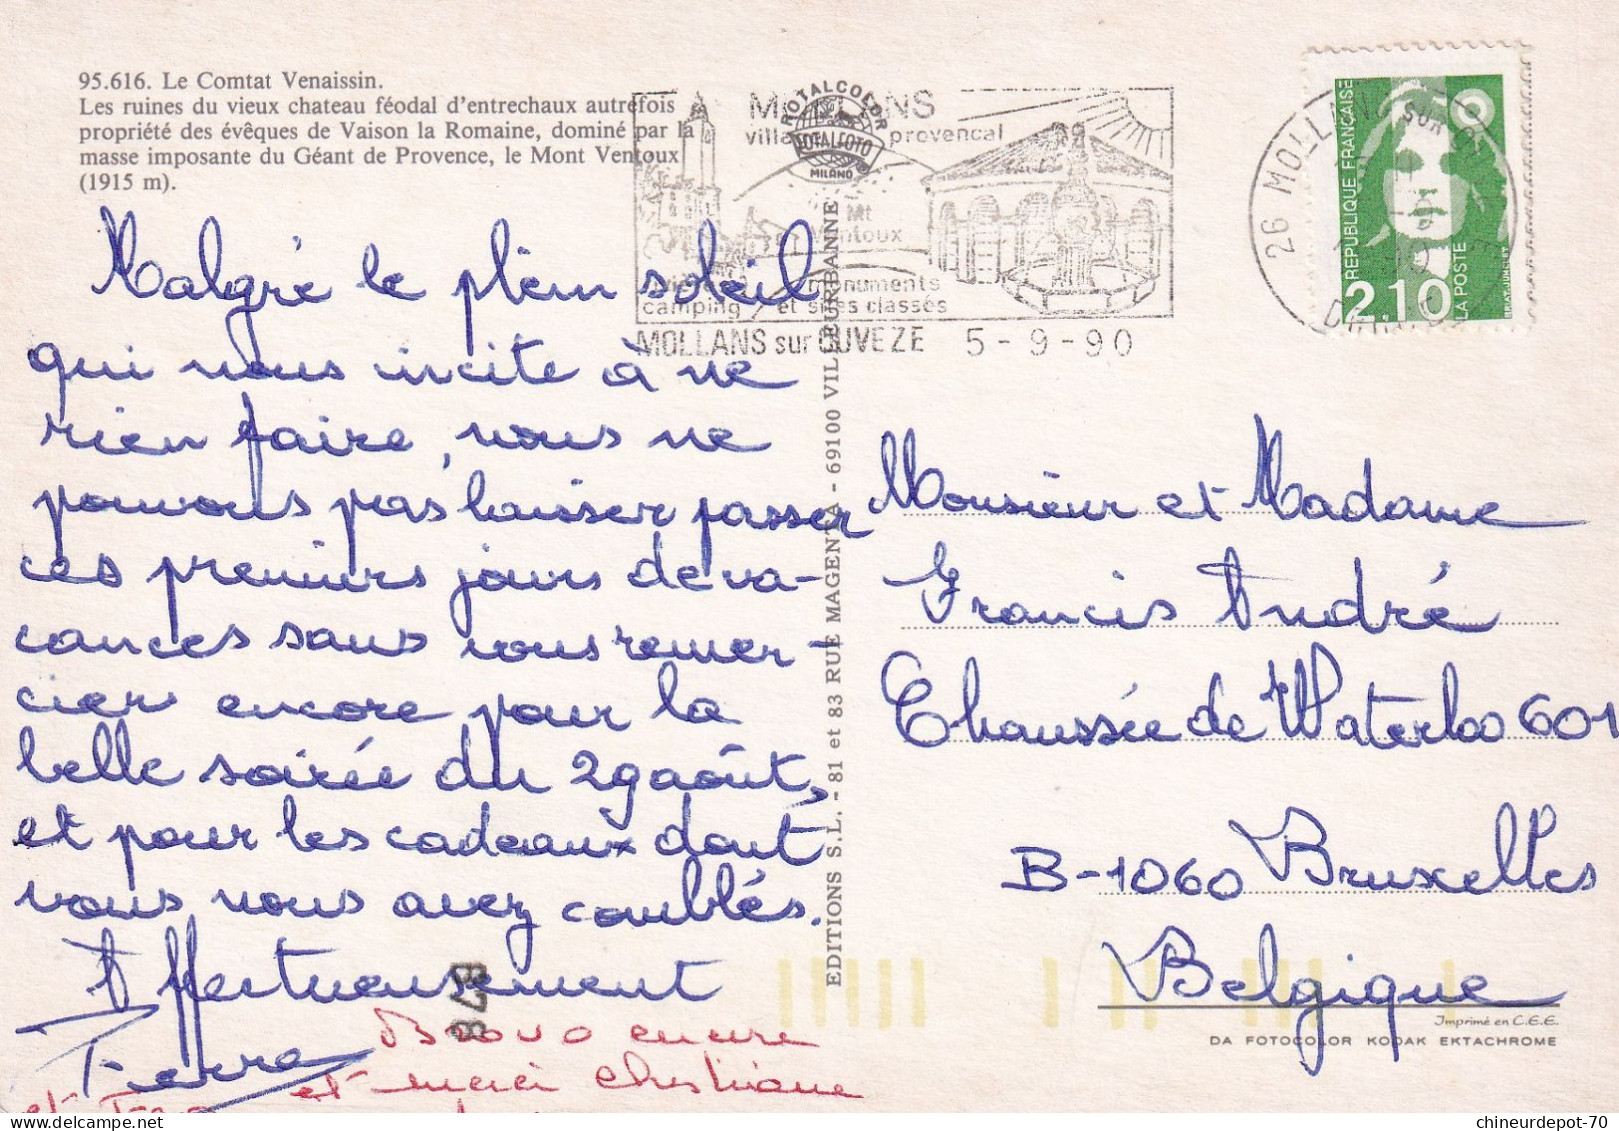 95.616. Le Comtat Venaissin.
Les ruines du vieux chateau féodal d'entrechaux autrefois
propriété des évêques de Vaison la Romaine, dominé par la
masse imposante du Géant de Provence, le Mont Ventoux
(1915 m).
Malgré le plein soleil
qui nous incite à ne
rien faire, nous ne
pouvons pas laisser passer
ces premiers jours de va-
cances sans vous remer-
cier encore pour la
belle soirée du 29 août,
et pour les cadeaux dont
vous nous avez comblés.
Affectueusement
Pierre
Bravo encore
et merci Christiane
et
878
EDITIONS S.L. - 81 et 83 RUE MAGENTA - 69100 VILLEURBANNE
ROTALCOLOR
ROTALFOTO
MILANO
MOLLANS
village provencal
Mt
Ventoux
rivière monuments
camping et sites classés
MOLLANS sur OUVEZE 5-9-90
26 MOLLANS SUR OUVEZE
DROME
REPUBLIQUE FRANÇAISE
2,10
LA POSTE
BRIAT-JUMELET
Monsieur et Madame
Francis André
Chaussée de Waterloo 601
B-1060 Bruxelles
Belgique
Imprimé en C.E.E.
DA FOTOCOLOR KODAK EKTACHROME
chineurdepot-70